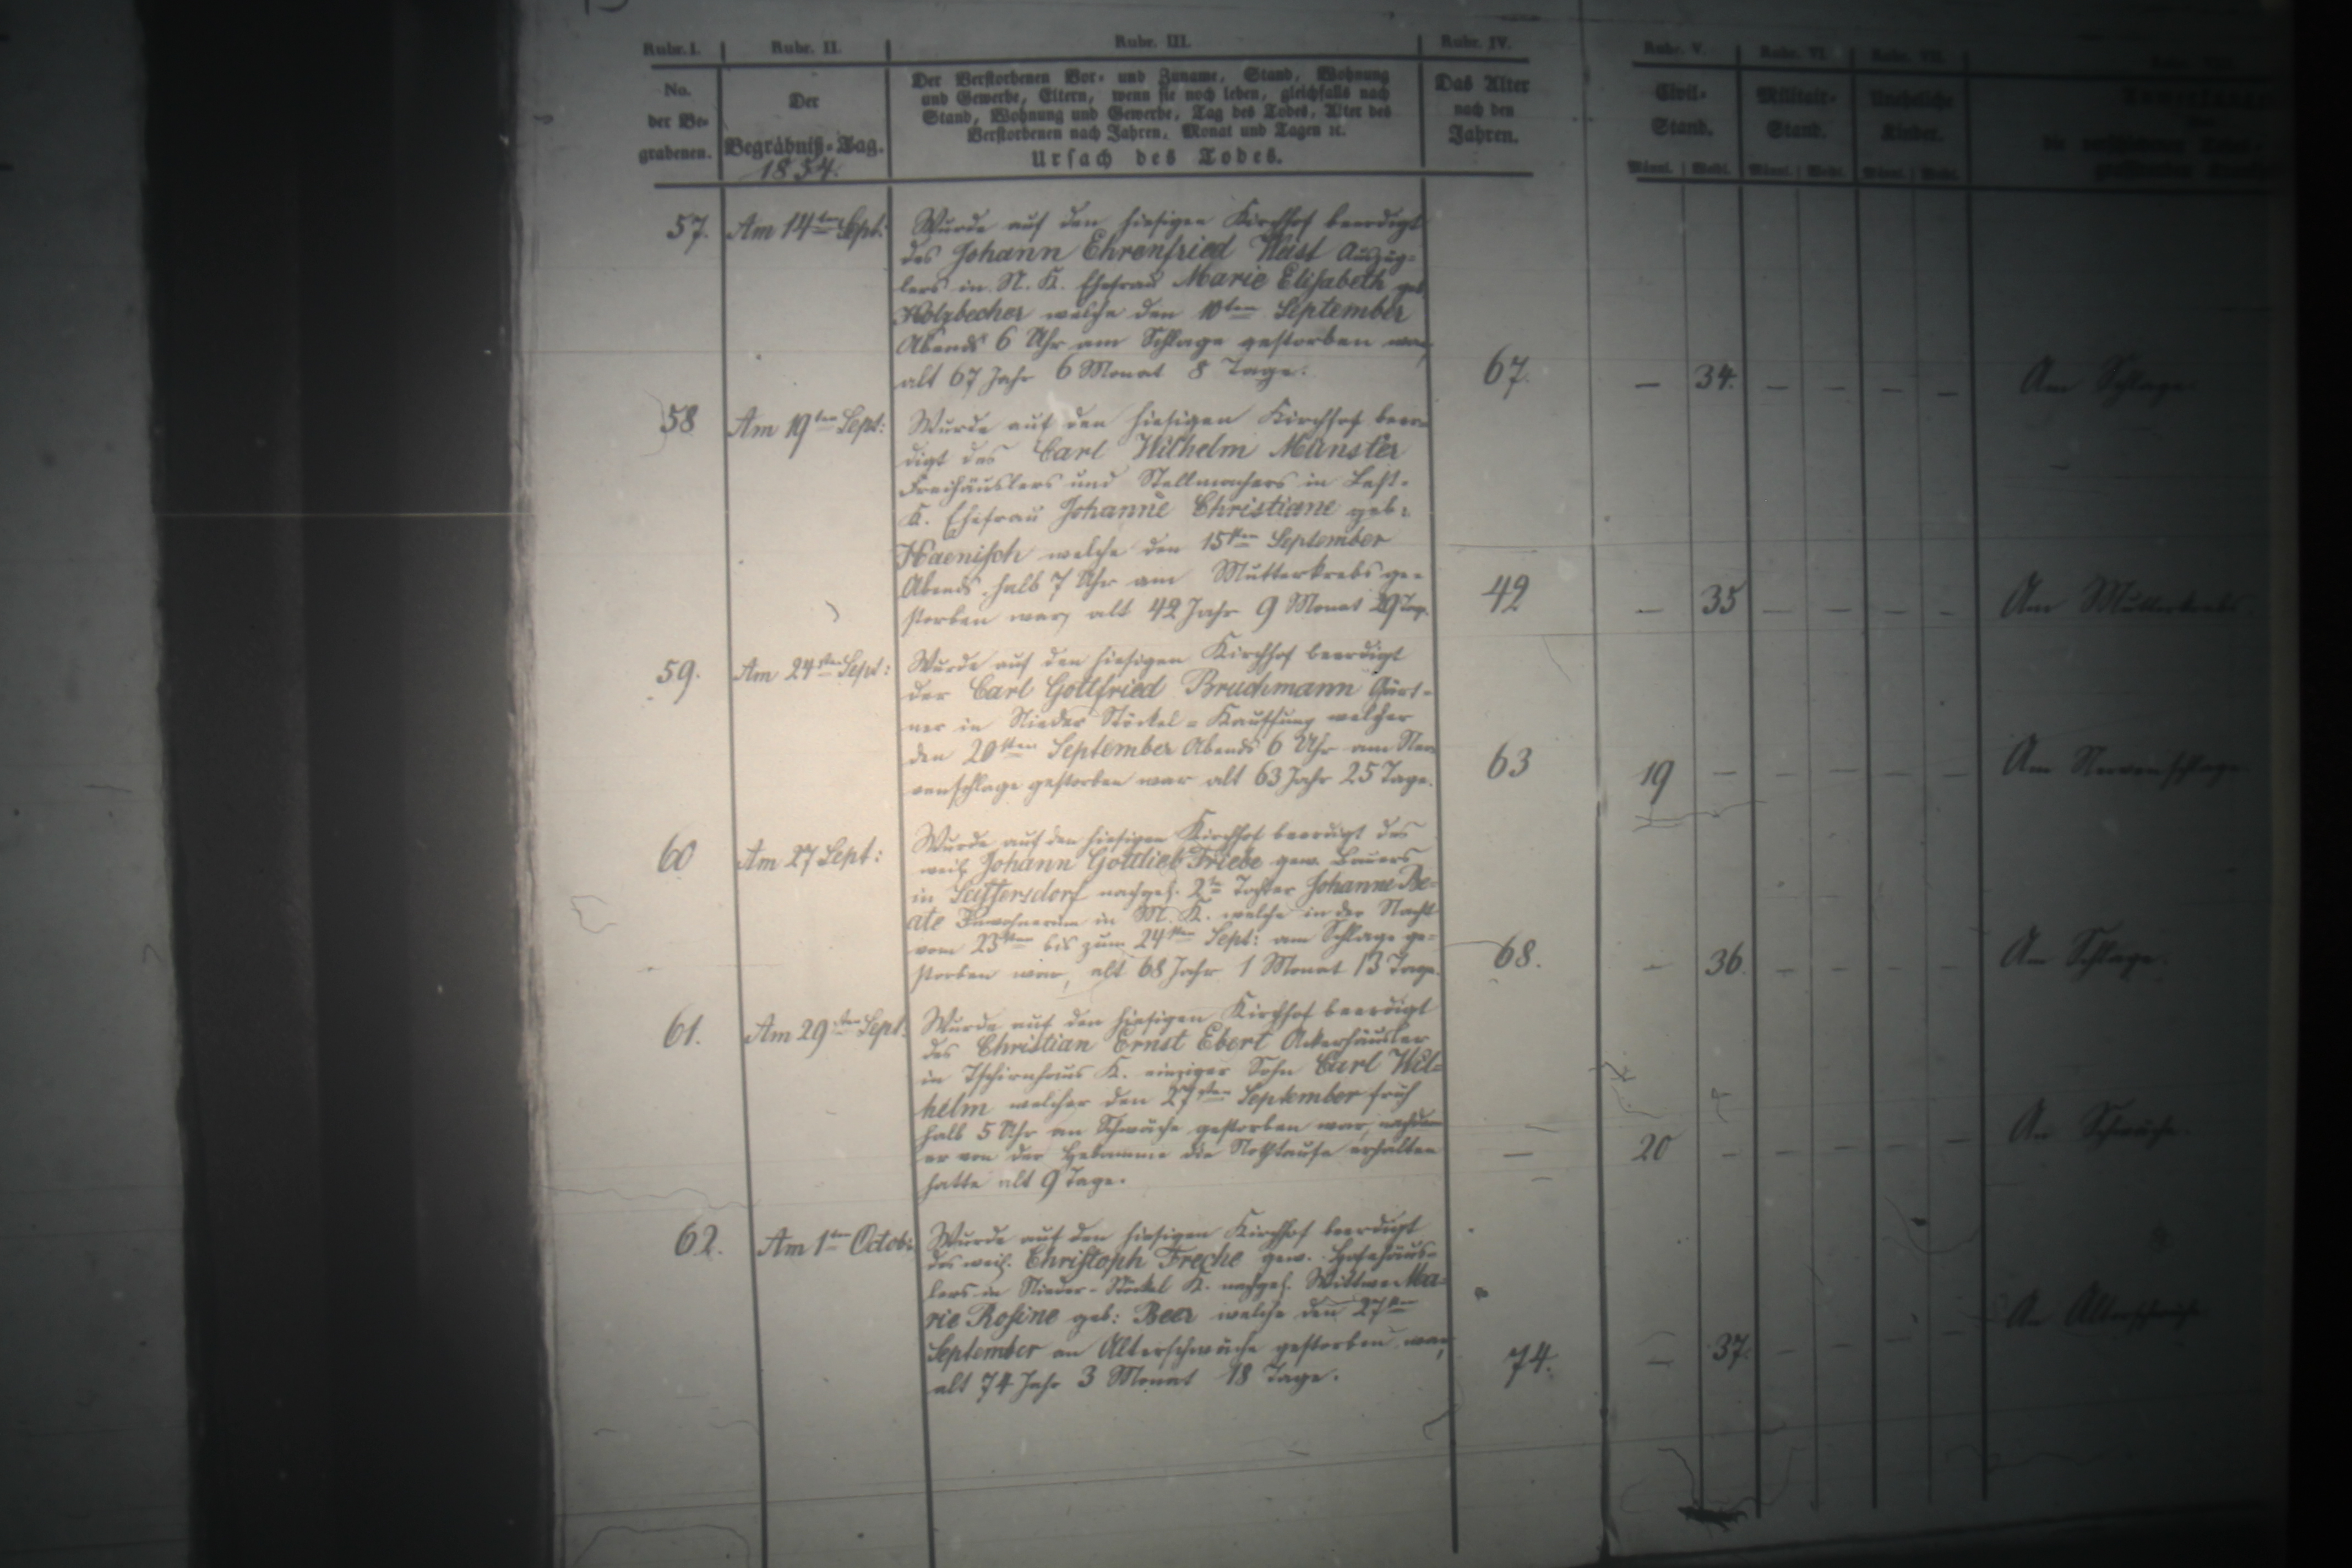 Rubr. I. Rubr. II. Rubr. III. Rubr. IV. Rubr. V. Rubr. VI. Rubr. VII.
No. der Be-grabenen.
Der Begräbniß-Tag. 1854.
Der Verstorbenen Vor- und Zuname, Stand, Wohnung
und Gewerbe, Eltern, wenn sie noch leben, gleichfalls nach
Stand, Wohnung und Gewerbe, Tag des Todes, Alter des
Verstorbenen nach Jahren, Monat und Tagen ꝛc.
Ursach des Todes.
Das Alter nach den Jahren.
Civil-Stand. Männl. Weibl.
Militair-Stand. Männl. Weibl.
Uneheliche Kinder. Männl. Weibl.
57. Am 14ten Sept: Wurde auf den hiesigen Kirchhof beerdigt
des Johann Ehrenfried Auszüg-
lers in N. K. Ehefrau Marie Elisabeth geb
Holzbecher welche den 10ten September
Abends 6 Uhr am Schlage gestorben war,
alt 67 Jahr 6 Monat 8 Tage. 67. — 34. — — — — Am Schlage
58 Am 19ten Sept: Wurde auf den hiesigen Kirchhof beer-
digt des Carl Wilhelm Münster
Freihäuslers und Stellmachers in
K. Ehefrau Johanne Christiane geb:
Haenisch welche den 15ten September
Abends halb 7 Uhr am Mutterkrebs ge-
storben war, alt 42 Jahr 9 Monat 29 Tag. 42 — 35 — — — — Am Mutterkrebs
59. Am 24sten Sept: Wurde auf den hiesigen Kirchhof beerdigt
der Carl Gottfried Bruchmann Gärt-
ner in Nieder Stöckel-Kauffung welcher
den 20sten September Abends 6 Uhr am Ner-
venschlage gestorben war alt 63 Jahr 25 Tage. 63 19 — — — — — Am Nervenschlage
60 Am 27 Sept: Wurde auf den hiesigen Kirchhof beerdigt des
weil. Johann Gottlieb Friebe gew. Bauers
in Seiffersdorf nachgel. 2te Tochter Johanne Be-
ate Inwohnerin in M. K. welche in der Nacht
vom 23sten bis zum 24sten Sept: am Schlage ge-
storben war, alt 68 Jahr 1 Monat 13 Tage. 68. — 36. — — — — Am Schlage.
61. Am 29sten Sept. Wurde auf den hiesigen Kirchhof beerdigt
des Christian Ernst Ebert Ackerhäusler
in Tschirnhaus K. einziger Sohn Carl Wil-
helm welcher den 27sten September früh
halb 5 Uhr an Schwäche gestorben war, nachdem
er von der Hebamme die Nothtaufe erhalten
hatte alt 9 Tage. — 20 — — — — — An Schwäche.
62. Am 1ten Octob: Wurde auf den hiesigen Kirchhof beerdigt
des weil. Christoph Freche gew. Hofehäus-
lers in Nieder-Stöckel K. nachgel. Wittwe Ma-
rie Rosine geb: Beer welche den 27sten
September an Alterschwäche gestorben war,
alt 74 Jahr 3 Monat 18 Tage. 74. — 37. — — — — An Alterschwäche